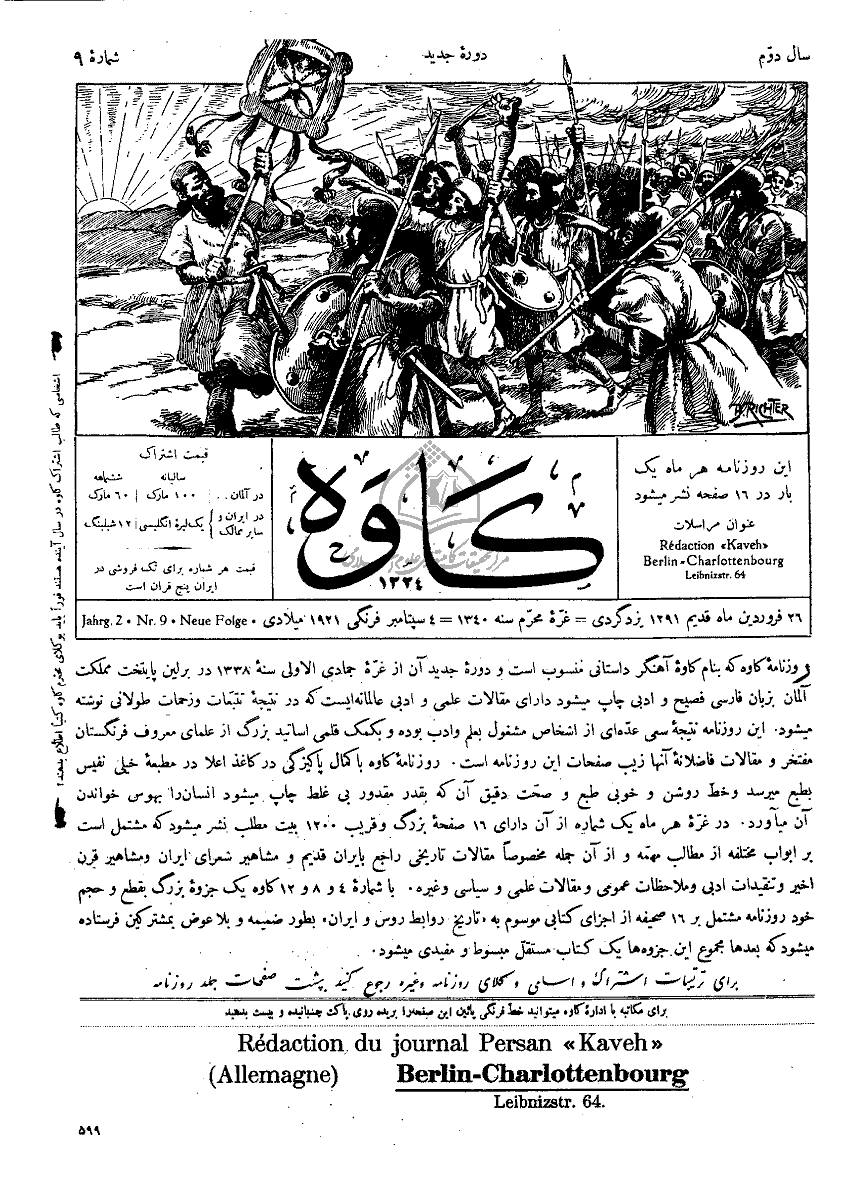 سال دوّم
دورهٔ جدید
شمارهٔ ۹
B. RICHTER
این روزنامه هر ماه یک
بار در ۱۶ صفحه نشر میشود
عنوان مراسلات
Rédaction «Kaveh»
Berlin-Charlottenbourg
Leibnizstr. 64
کاوه
۱۳۳٤
قیمت اشتراک
سالیانه ششماهه
در آلمان . . : ۱۰۰ مارک | ٦۰ مارک
در ایران و سایر ممالک } یک لیرهٔ انگلیسی | ۱۲ شیلینگ
قیمت هر شماره برای تک فروشی در
ایران پنج قران است
۲٦ فروردین ماه قدیم ۱۲۹۱ یزدگردی = غرّهٔ محرّم سنه ۱۳٤۰ = ٤ سپتامبر فرنگی ۱۹۲۱ میلادی • Jahrg. 2 • Nr. 9 • Neue Folge
اشخاصی که طالب اشتراک کاوه در سال آینده هستند فوراً باید بوکلای محترم کاوه کتباً اطلاع بدهند!
روزنامهٔ کاوه که بنام کاوهٔ آهنگر داستانی منسوب است و دورهٔ جدید آن از غرّهٔ جمادی الاولی سنهٔ ۱۳۳۸ در برلین پایتخت مملکت
آلمان بزبان فارسی فصیح و ادبی چاپ میشود دارای مقالات علمی و ادبی عالمانه‌ایست که در نتیجهٔ تتبّعات وزحمات طولانی نوشته
میشود. این روزنامه نتیجهٔ سعی عدّه‌ای از اشخاص مشغول بعلم وادب بوده و بکمک قلمی اساتید بزرگ از علمای معروف فرنگستان
مفتخر و مقالات فاضلانهٔ آنها زیب صفحات این روزنامه است. روزنامهٔ کاوه با کمال پاکیزگی در کاغذ اعلا در مطبعهٔ خیلی نفیس
بطبع میرسد وخط روشن و خوبی طبع و صحّت دقیق آن که بقدر مقدور بی غلط چاپ میشود انسان‌را بهوس خواندن
آن میآورد. در غرّهٔ هر ماه یک شماره از آن دارای ۱٦ صفحهٔ بزرگ وقریب ۱۲۰۰ بیت مطلب نشر میشود که مشتمل است
بر ابواب مختلفه از مطالب مهمّه و از آن جمله مخصوصاً مقالات تاریخی راجع بایران قدیم و مشاهیر شعرای ایران ومشاهیر قرن
اخیر وتنقیدات ادبی وملاحظات عمومی ومقالات علمی و سیاسی وغیره. با شمارهٔ ٤ و ۸ و ۱۲ کاوه یک جزوهٔ بزرگ بقطع و حجم
خود روزنامه مشتمل بر ۱٦ صحیفه از اجزای کتابی موسوم به «تاریخ روابط روس و ایران» بطور ضمیمه و بلاعوض بمشترکین فرستاده
میشود که بعدها مجموع این جزوه‌ها یک کتاب مستقل مبسوط و مفیدی میشود.
برای ترتیبات اشتراک و اسامی وکلای روزنامه وغیره رجوع کنید بپشت صفحات جلد روزنامه
برای مکاتبه با ادارهٔ کاوه میتوانید خط فرنگی پائین این صفحه‌را بریده روی پاکت چسبانیده و بپست بدهید
Rédaction du journal Persan «Kaveh»
(Allemagne) Berlin-Charlottenbourg
Leibnizstr. 64.
۵۹۹